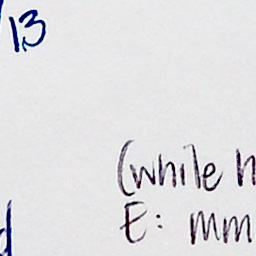 /13
(while h
E: mm
d